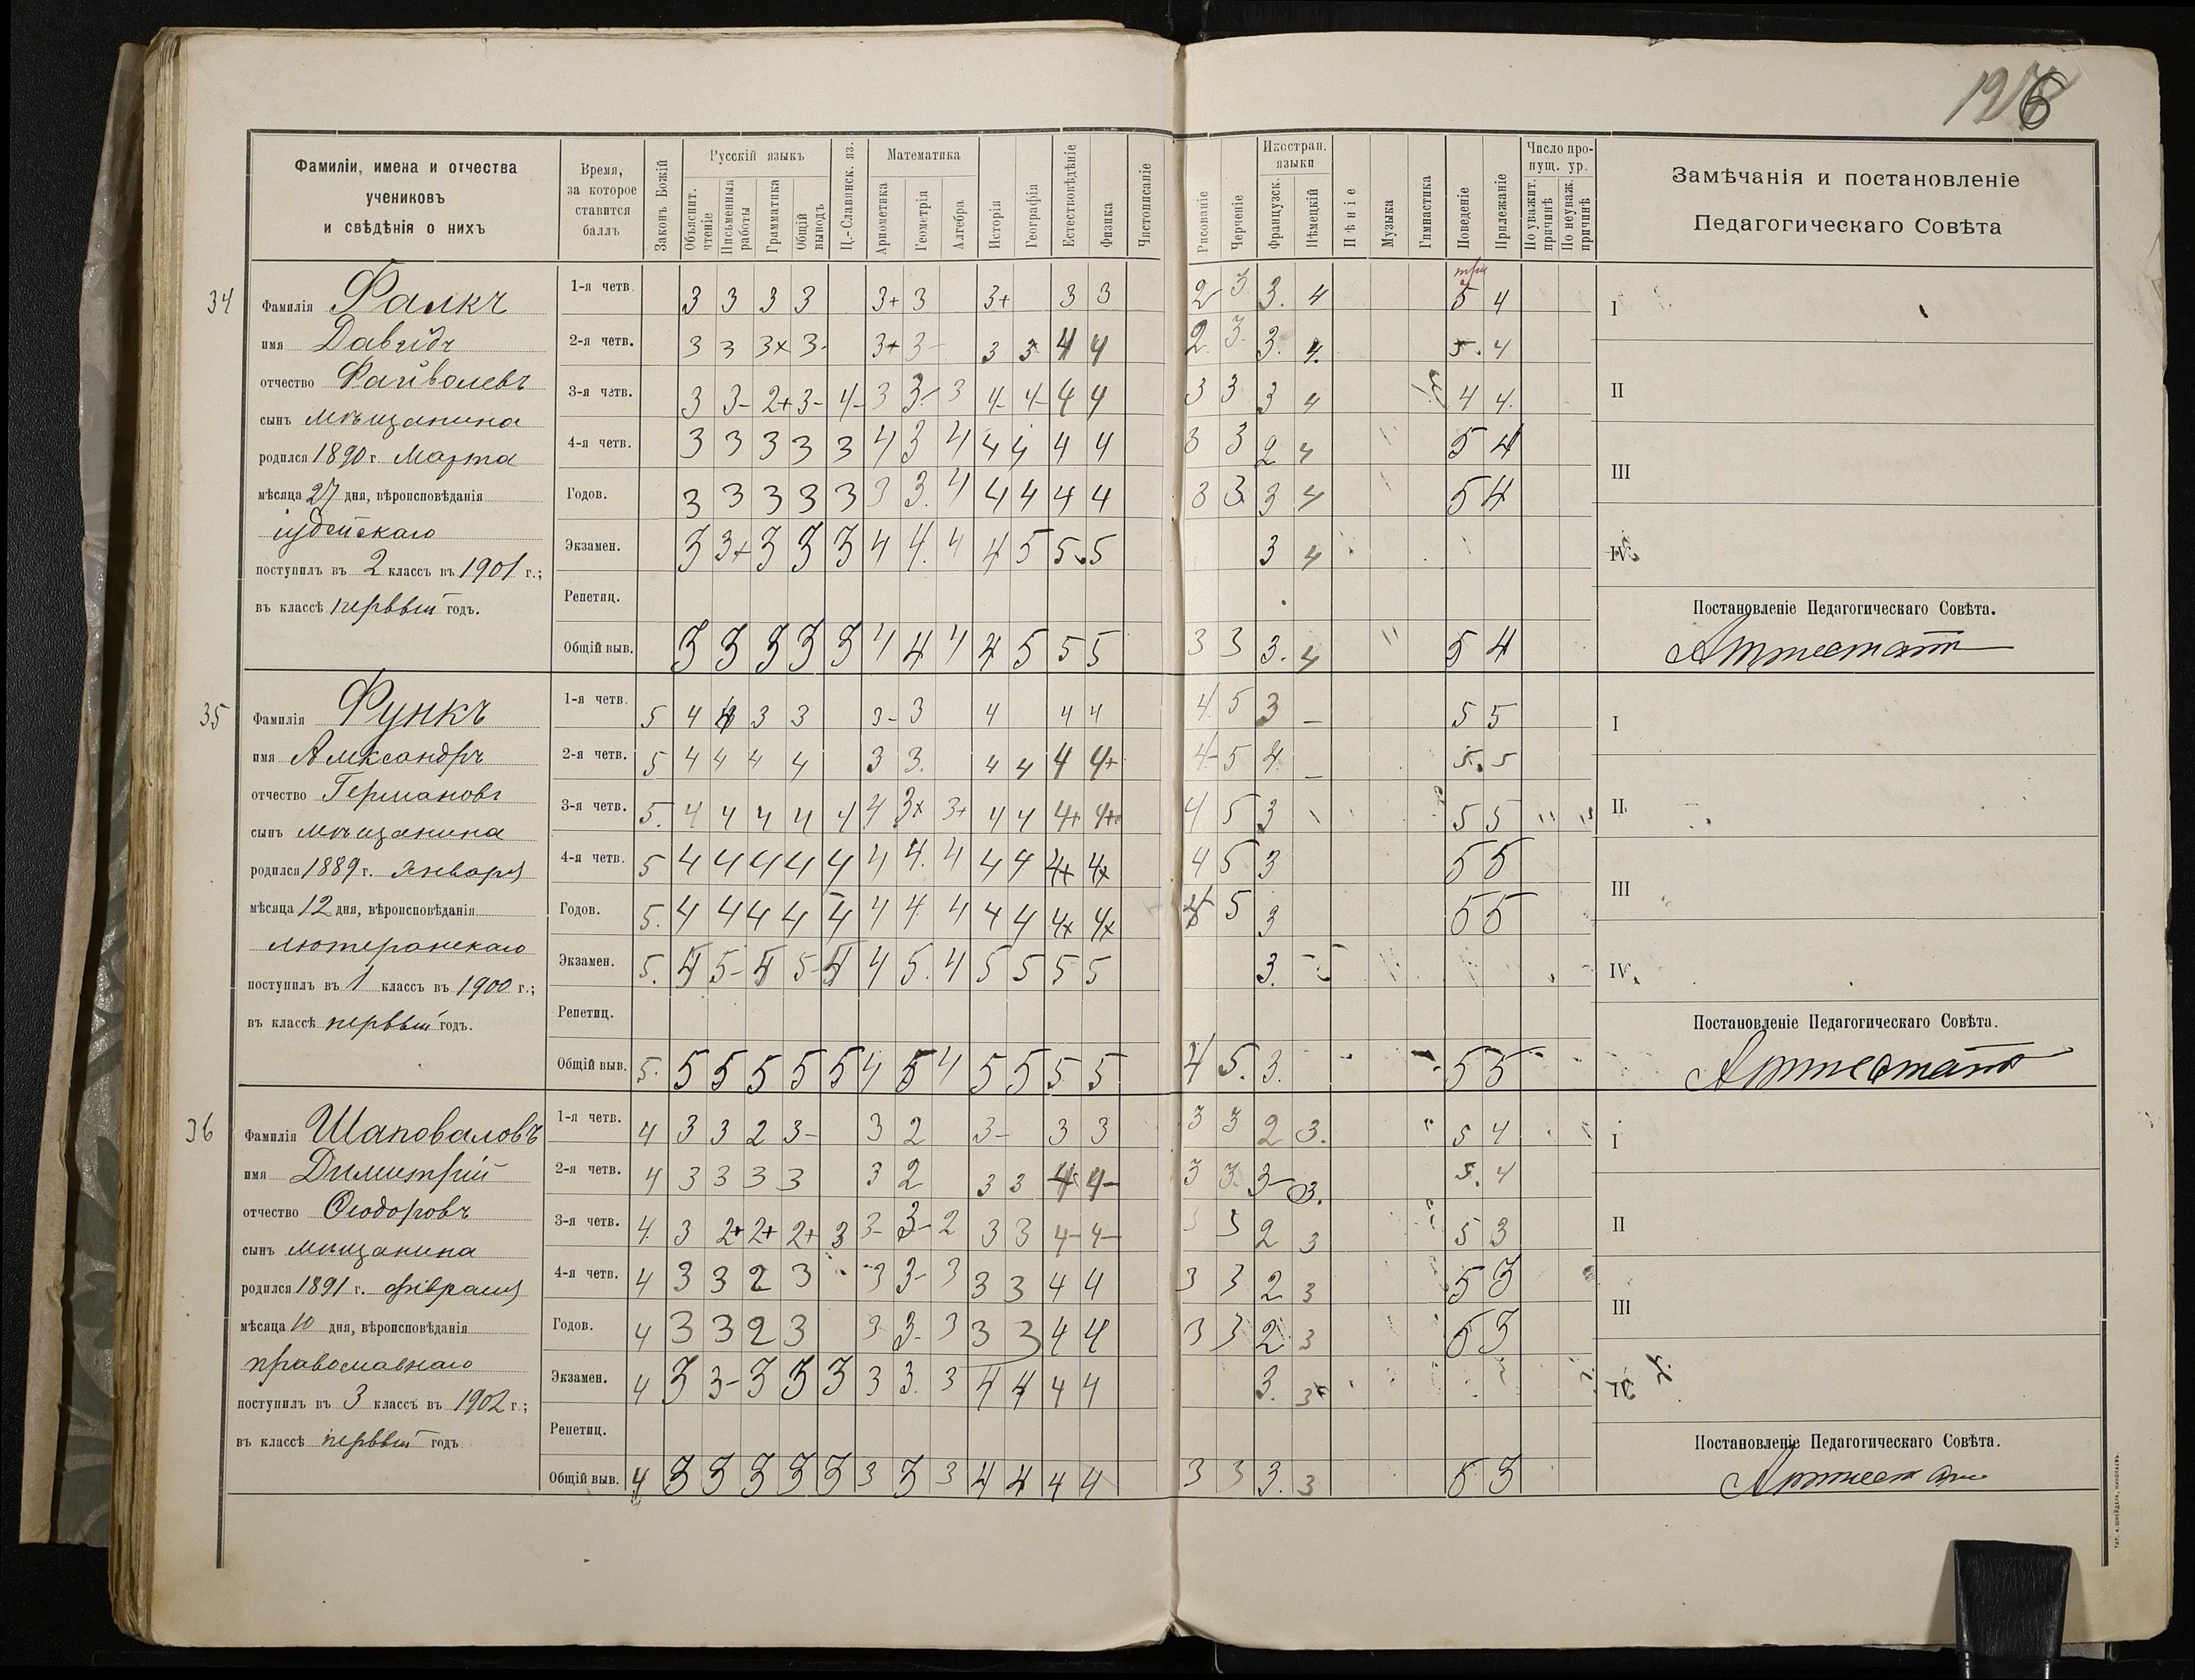 126
Фамиліи, имена и отчества
учениковъ
и свѣдѣнія о нихъ
Время,
за которое
ставится
баллъ
Законъ Божій
Русскій языкъ
Объяснит. чтеніе
Письменныя работы
Грамматика
Общій выводъ
Ц.-Славянск. яз.
Математика
Ариѳметика
Геометрія
Алгебра
Исторія
Географія
Естествовѣдѣніе
Физика
Чистописаніе
Рисованіе
Черченіе
Иностран. языки
Французск.
Нѣмецкій
Пѣніе
Музыка
Гимнастика
Поведеніе
Прилежаніе
Число пропущ. ур.
По уважит. причинѣ
По неуваж. причинѣ
Замѣчанія и постановленіе
Педагогическаго Совѣта
34
Фамилія Фалкъ
имя Давидъ
отчество Файволевъ
сынъ мѣщанина
родился 1890 г. Марта
мѣсяца 27 дня, вѣроисповѣданія
іудейскаго
поступилъ въ 2 классъ въ 1901 г.;
въ классѣ первый годъ.
1-я четв. 3 3 3 3 3+ 3 3+ 3 3 2 3 3. 4 три 5 4
2-я четв. 3 3 3х 3- 3+ 3- 3 3 4 4 2. 3. 3. 4. 5. 4
3-я четв. 3 3- 2+ 3- 4- 3 3- 3 4- 4- 4 4 3 3 3 4 4 4.
4-я четв. 3 3 3 3 3 4 3 4 4 4 4 4 3 3 2 4 5 4
Годов. 3 3 3 3 3 3 3. 4 4 4 4 4 3 3 3 4 5 4
Экзамен. 3 3+ 3 3 3 4 4. 4 4 5 5 5 3 4
Репетиц.
Общій выв. 3 3 3 3 3 4 4 4 4 5 5 5 3 3 3. 4 5 4
I
II
III
IV
Постановленіе Педагогическаго Совѣта.
Аттестатъ
35
Фамилія Функъ
имя Александръ
отчество Германовъ
сынъ мѣщанина
родился 1889 г. Января
мѣсяца 12 дня, вѣроисповѣданія
лютеранскаго
поступилъ въ 1 классъ въ 1900 г.;
въ классѣ первый годъ.
1-я четв. 5 4 4 3 3 3- 3 4 4 4 4. 5 3 – 5 5
2-я четв. 5 4 4 4 4 3 3. 4 4 4 4+ 4- 5 4. – 5. 5
3-я четв. 5. 4 4 4 4 4 4 3х 3+ 4 4 4+ 4+ 4 5 3 5 5
4-я четв. 5 4 4 4 4 4 4 4. 4 4 4 4х 4х 4 5 3 5 5
Годов. 5. 4 4 4 4 4 4 4. 4 4 4 4х 4х 4 5 3 5 5
Экзамен. 5. 4 5- 4 5- 4 4 5. 4 5 5 5 5 3.
Репетиц.
Общій выв. 5. 5 5 5 5 5 4 5 4 5 5 5 5 4 5. 3. 5 5
I
II
III
IV
Постановленіе Педагогическаго Совѣта.
Аттестатъ
36
Фамилія Шаповаловъ
имя Димитрій
отчество Ѳеодоровъ
сынъ мѣщанина
родился 1891 г. февраля
мѣсяца 10 дня, вѣроисповѣданія
православнаго
поступилъ въ 3 классъ въ 1902 г.;
въ классѣ первый годъ
1-я четв. 4 3 3 2 3- 3 2 3- 3 3 3 3 2 3. 5 4
2-я четв. 4 3 3 3 3 3 2 3 3 4 4- 3 3. 3- 3. 5. 4
3-я четв. 4. 3 2+ 2+ 2+ 3 3- 3- 2 3 3 4- 4- 3 3 2 3 5 3
4-я четв. 4 3 3 2 3 3 3- 3 3 3 4 4 3 3 2 3 5 3
Годов. 4 3 3 2 3 3 3- 3 3 3 4 4 3 3 2. 3 5 3
Экзамен. 4 3 3- 3 3 3 3 3. 3 4 4 4 4 3. 3+
Репетиц.
Общій выв. 4 3 3 3 3 3 3 3 3 4 4 4 4 3 3 3. 3 5 3
I
II
III
IV
Постановленіе Педагогическаго Совѣта.
Аттестатъ